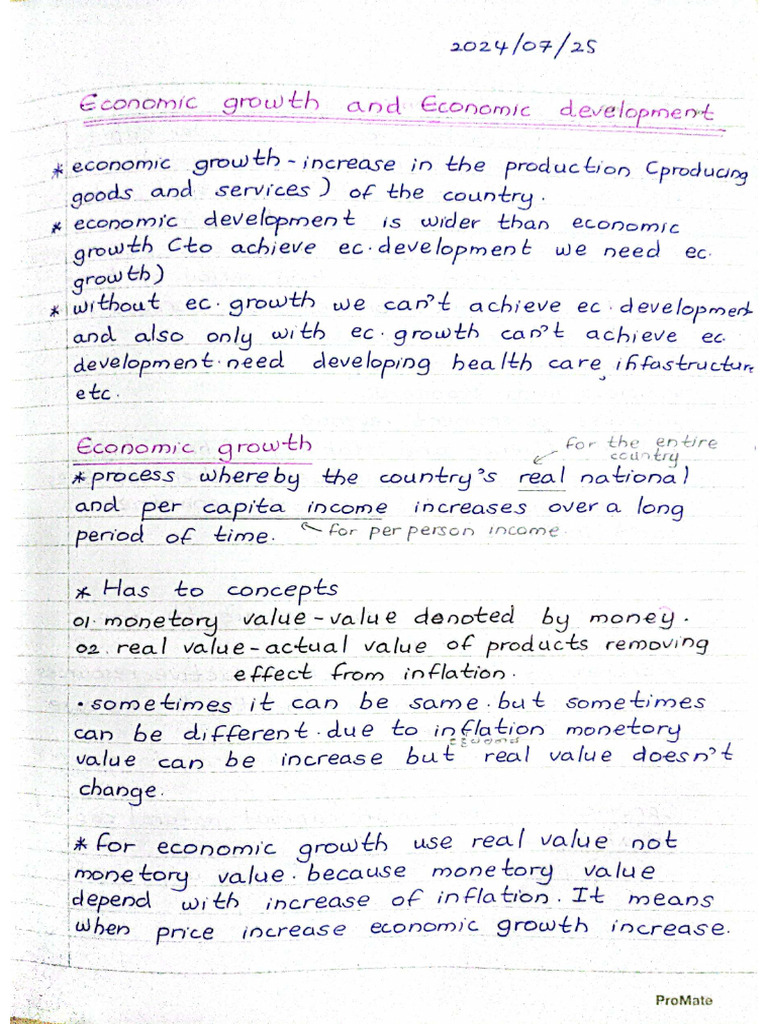 2024/07/25
Economic growth and Economic development
* economic growth - increase in the production (producing
goods and services) of the country.
* economic development is wider than economic
growth (to achieve ec. development we need ec.
growth)
* without ec. growth we can't achieve ec. development
and also only with ec. growth can't achieve ec.
development. need developing health care, infastructure
etc.
Economic growth
for the entire
country
* process whereby the country's real national
and per capita income increases over a long
period of time.
for per person income.
* Has to concepts
01. monetory value - value denoted by money.
02. real value - actual value of products removing
effect from inflation.
• sometimes it can be same. but sometimes
can be different. due to inflation monetory
value can be increase but real value doesn't
change.
* for economic growth use real value not
monetory value. because monetory value
depend with increase of inflation. It means
when price increase economic growth increase.
ProMate